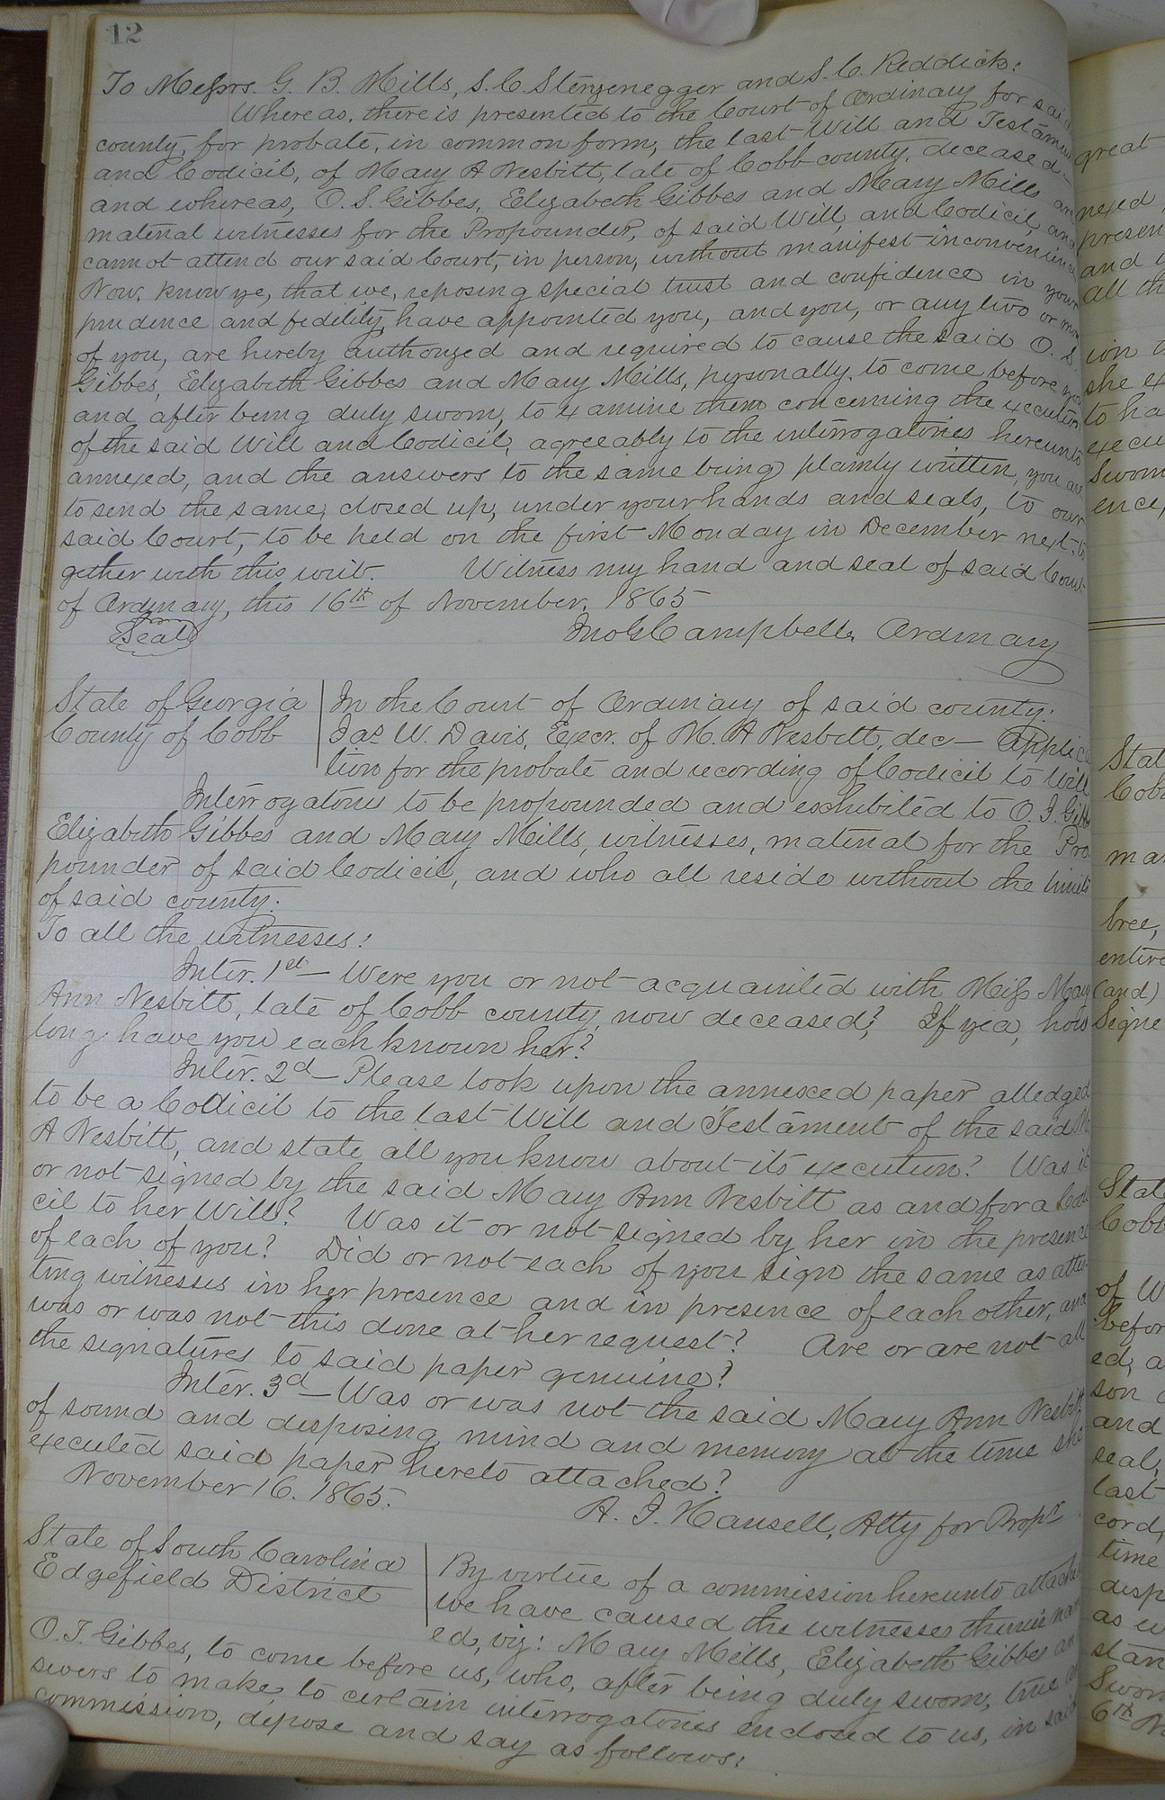 12
To Messrs. G. B. Mills, S. C. Stenzenegger and S. C. Reddick:
Whereas, there is presented to the Court of Ordinary for said
county, for probate, in common form, the last Will and Testament
and Codicil, of Mary A Nesbitt, late of Cobb county, deceased—
and whereas, O. S. Gibbes, Elizabeth Gibbes and Mary Mills are
material witnesses for the Propounder, of said Will, and Codicil, and
cannot attend our said Court, in person, without manifest inconvenience
Now, know ye, that we, reposing special trust and confidence in your
prudence and fidelity, have appointed you, and you, or any two or more
of you, are hereby authorized and required to cause the said O. S.
Gibbes, Elizabeth Gibbes and Mary Mills, personally, to come before you
and after being duly sworn, to examine them concerning the execution
of the said Will and Codicil, agreeably to the interrogatories hereunto
annexed, and the answers to the same being plainly written, you are
to send the same, closed up, under your hands and seals, to our
said Court, to be held on the first Monday in December next, to
gether with this writ. Witness my hand and seal of said Court
of Ordinary, this 16th of November, 1865
Seal Jno G Campbell, Ordinary
State of Georgia In the Court of Ordinary of said county:
County of Cobb Jas W. Davis, Excr. of M. A Nesbitt, dec— Applica
tion for the probate and recording of Codicil to Will
Interrogatories to be propounded and exhibited to O. J. Gibbes
Elizabeth Gibbes and Mary Mills, witnesses, material for the Pro
pounder of said Codicil, and who all reside without the limits
of said county:
To all the witnesses:
Inter. 1st— Were you or not acquainted with Miss Mary
Ann Nesbitt, late of Cobb county, now deceased? If yea, how
long have you each known her?
Inter. 2d— Please look upon the annexed paper alledged
to be a Codicil to the last Will and Testament of the said M
A Nesbitt, and state all you know about its execution? Was it
or not signed by the said Mary Ann Nesbitt as and for a Codi
cil to her Will? Was it or not signed by her in the presence
of each of you? Did or not each of you sign the same as attes
ting witnesses in her presence and in presence of each other, and
was or was not this done at her request? Are or are not all
the signatures to said paper genuine?
Inter. 3d— Was or was not the said Mary Ann Nesbitt
of sound and disposing mind and memory at the time she
executed said paper hereto attached?
November 16. 1865.
A. J. Hansell, Atty for Propr
State of South Carolina By virtue of a commission hereunto attached
Edgefield District we have caused the witnesses therein nam
ed, viz: Mary Mills, Elizabeth Gibbes an
O. J. Gibbes, to come before us, who, after being duly sworn, true an
swers to make, to certain interrogatories enclosed to us, in said
commission, depose and say as follows: